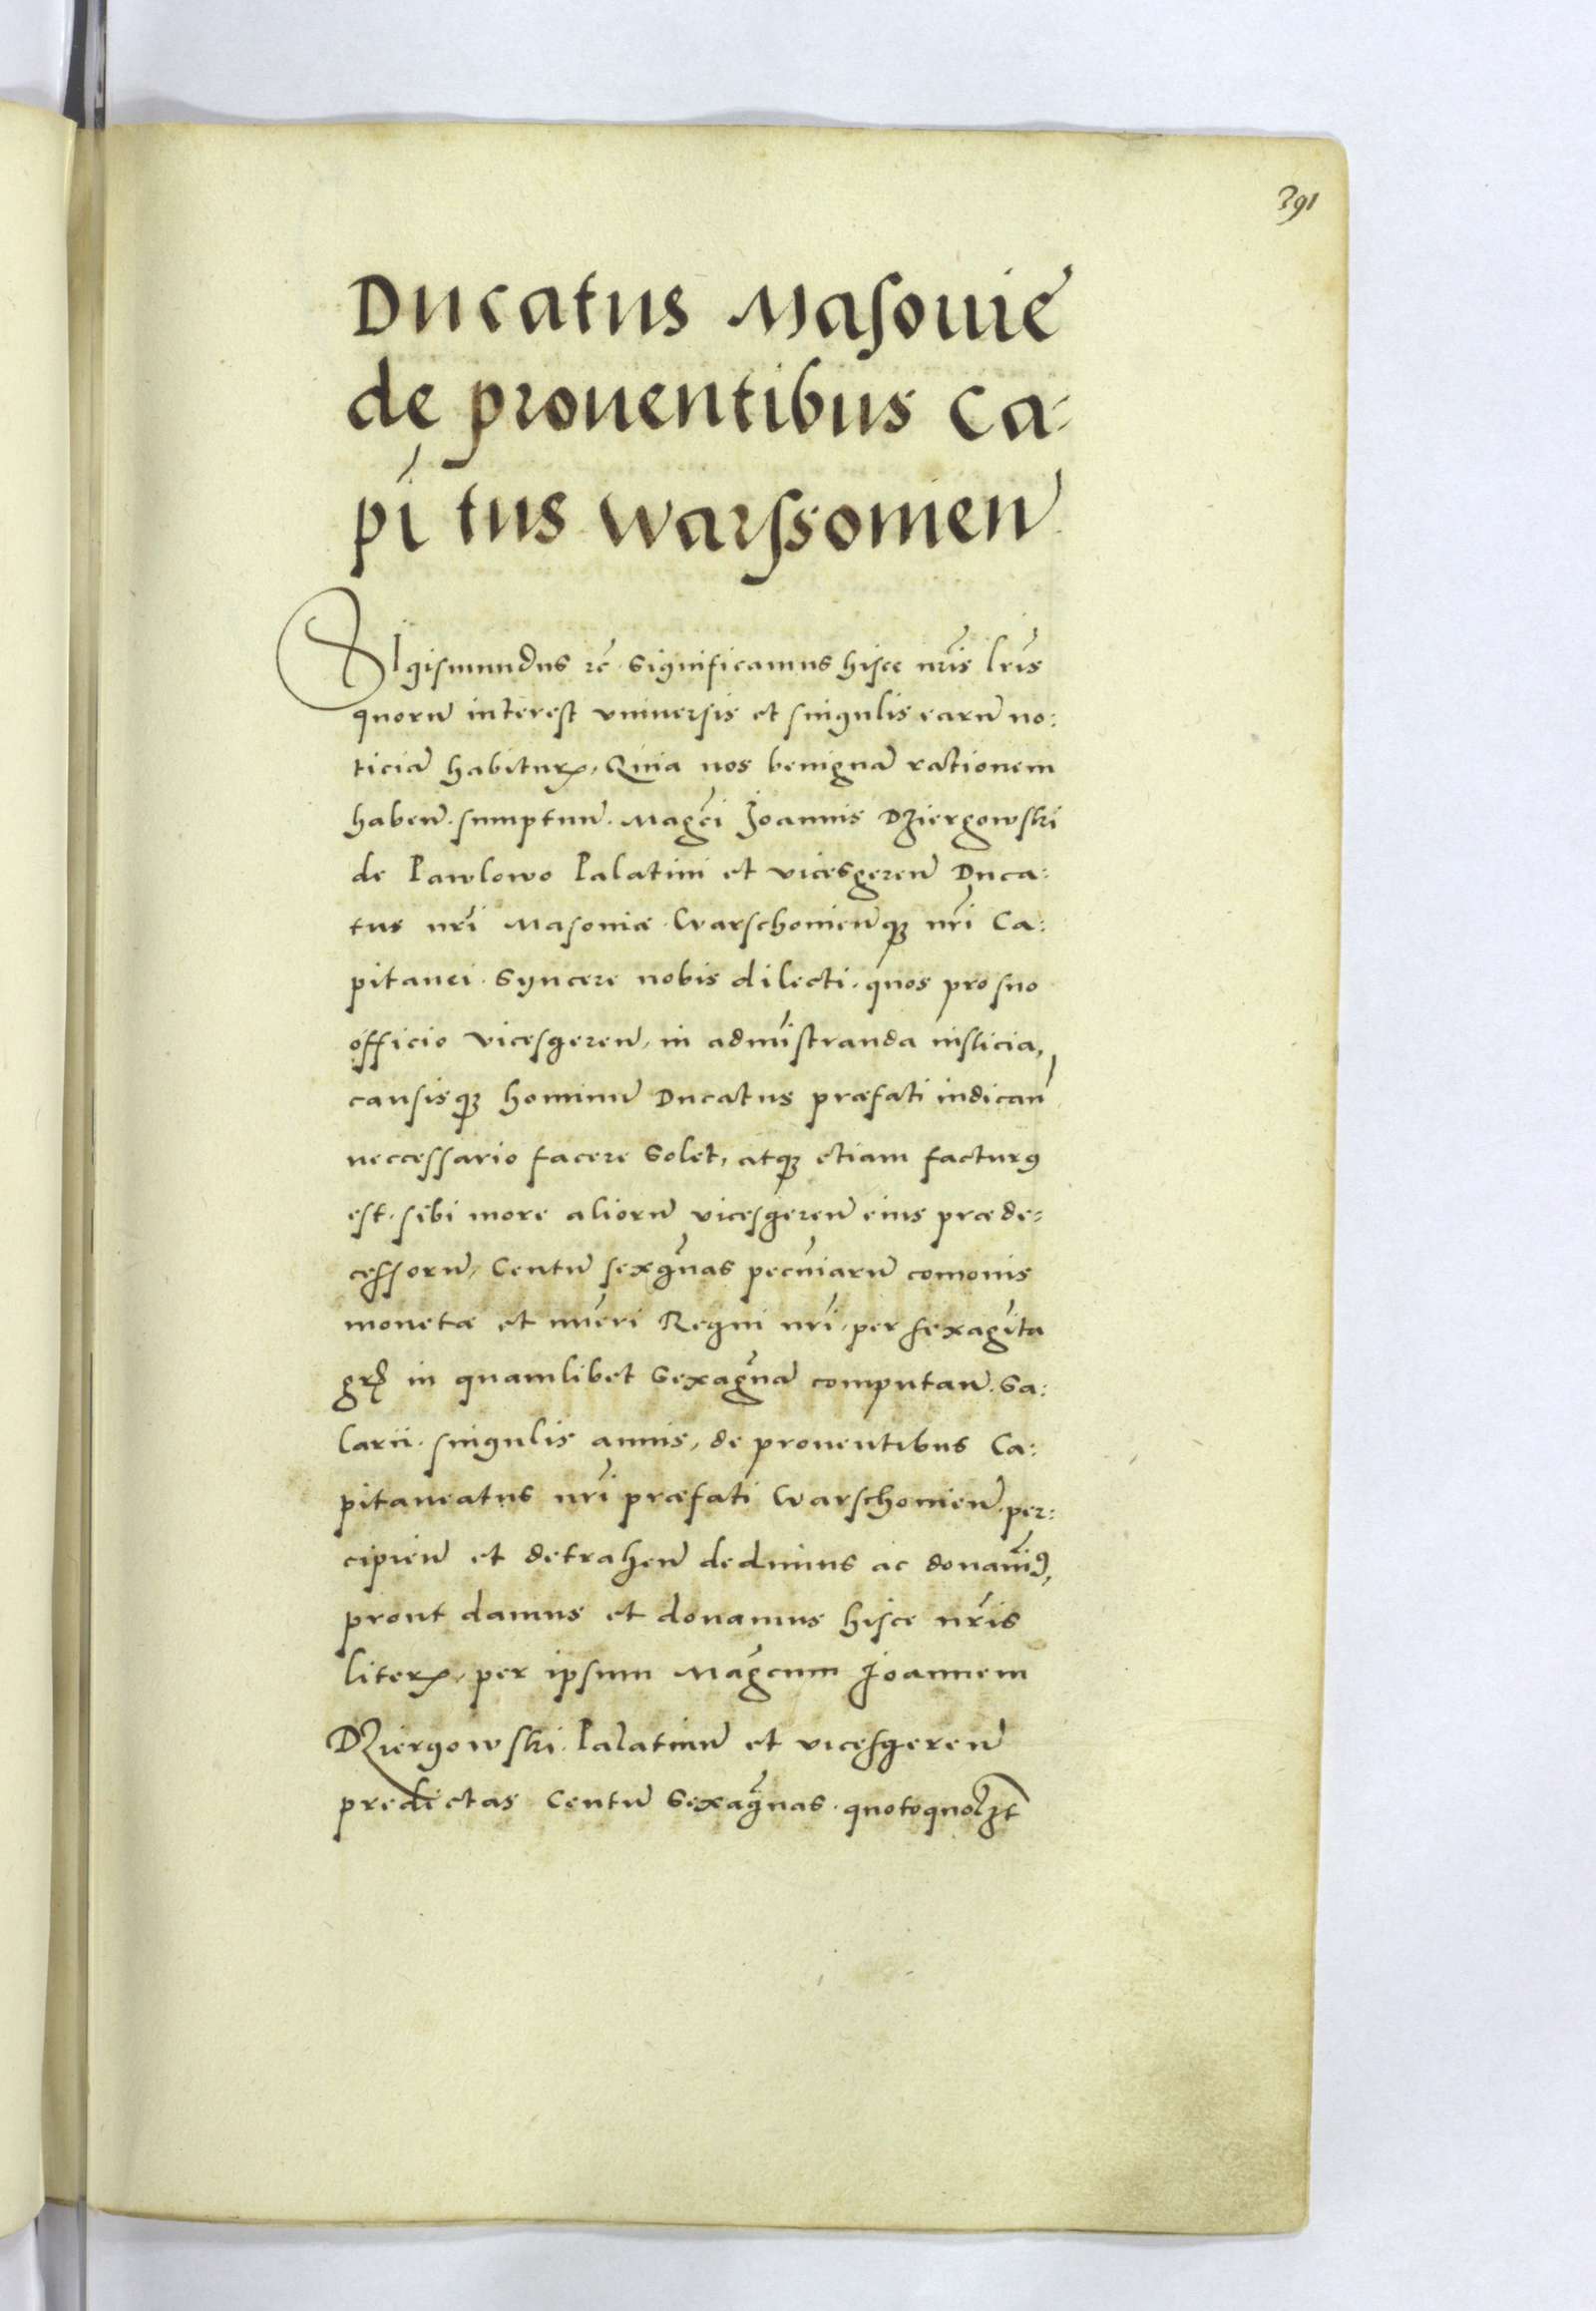 391
Ducatus Masouie
de prouentibus Ca:
pi tus Warssouien
Sigismundus rē significamus hisce nris lris
quorū interest vniuersis et singulis earū no:
ticiā habiturꝭ, Quia nos benignā rationem
habeñ. sumptuū. Magci Joannis Dziergowski
de Pawlowo Palatini et vicesgereñ Duca:
tus nri Masouiæ Warschouieñqꝫ nri Ca:
pitanei. syncere nobis dilecti. quos pro suo
officio vicesgereñ, in admīstranda iusticia,
causisqꝫ hominū Ducatus præfati iudicañ
neccessario facere solet, atqꝫ etiam facturꝰ
est. sibi more aliorū vicesgereñ eius præde=
cessorū, Centū sexgnas pecuniarū comonis
monetæ et nūeri Regni nri, per sexagīta
grꝭ in quamlibet sexagnā computañ. Sa:
larii. singulis annis, de prouentibus Ca:
pitaneatus nri præfati Warschouieñ. per:
cipieñ et detraheñ dedimus ac donauimꝰ,
prout damus et donamus hisce nris
literꝭ, per ipsum Magcum Joannem
Dziergowski. Palatinū et vicesgereñ
predictas Centū sexagnas. quotoquolꝫt